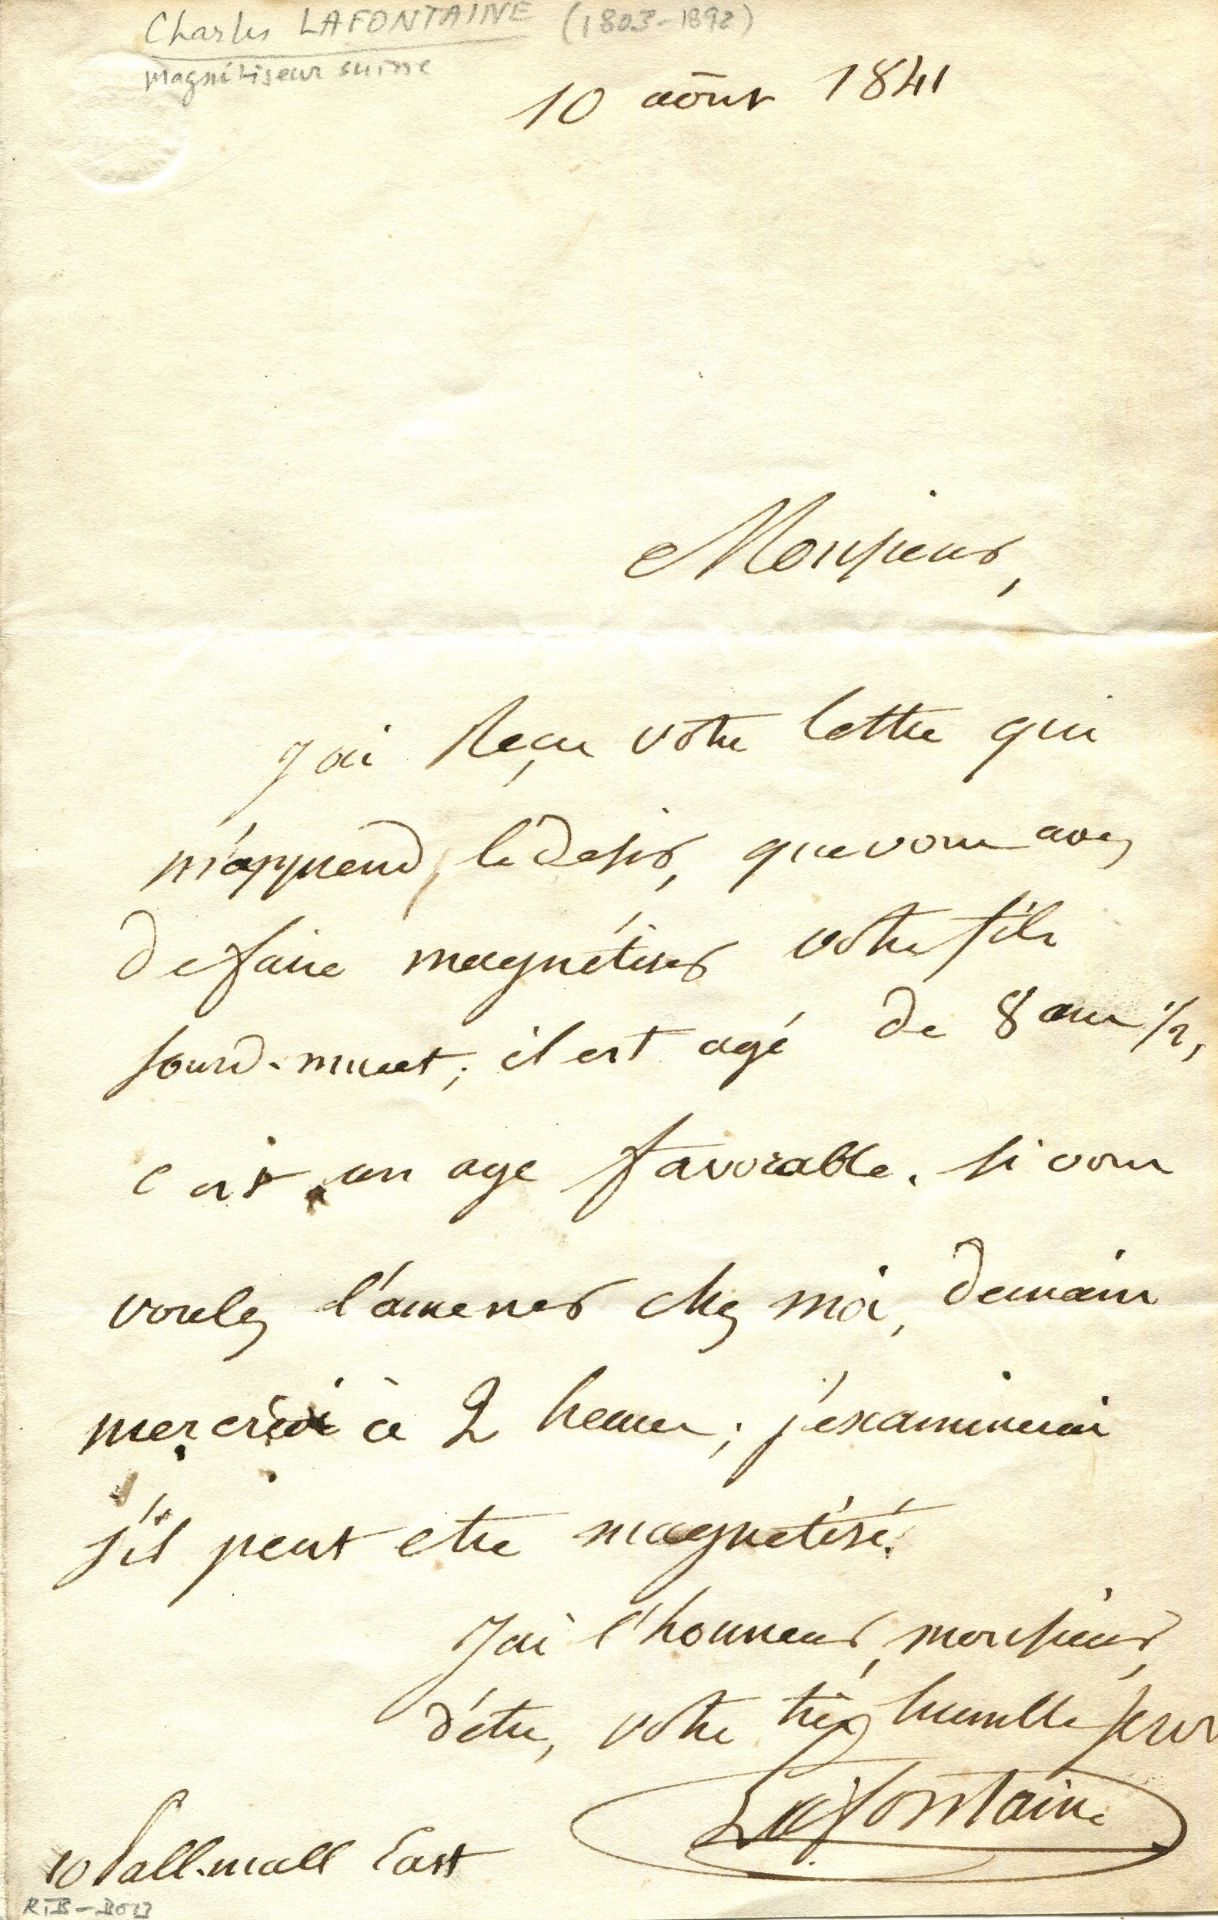 Charles LAFONTAINE (1803-1892)
magnétiseur suisse
10 août 1841
Monsieur,
J'ai reçu votre lettre qui
m'apprend, le desir, que vous avez
de faire magnétiser votre fils
sourd-muet; il est agé de 8 ans 1/2,
c'est un age favorable. si vous
voulez l'amener chez moi, demain
mercredi à 2 heures; j'examinerai
s'il peut etre magnétisé.
J'ai l'honneur, monsieur,
d'être, votre très humble serv
Lafontaine
10 Pall-mall East